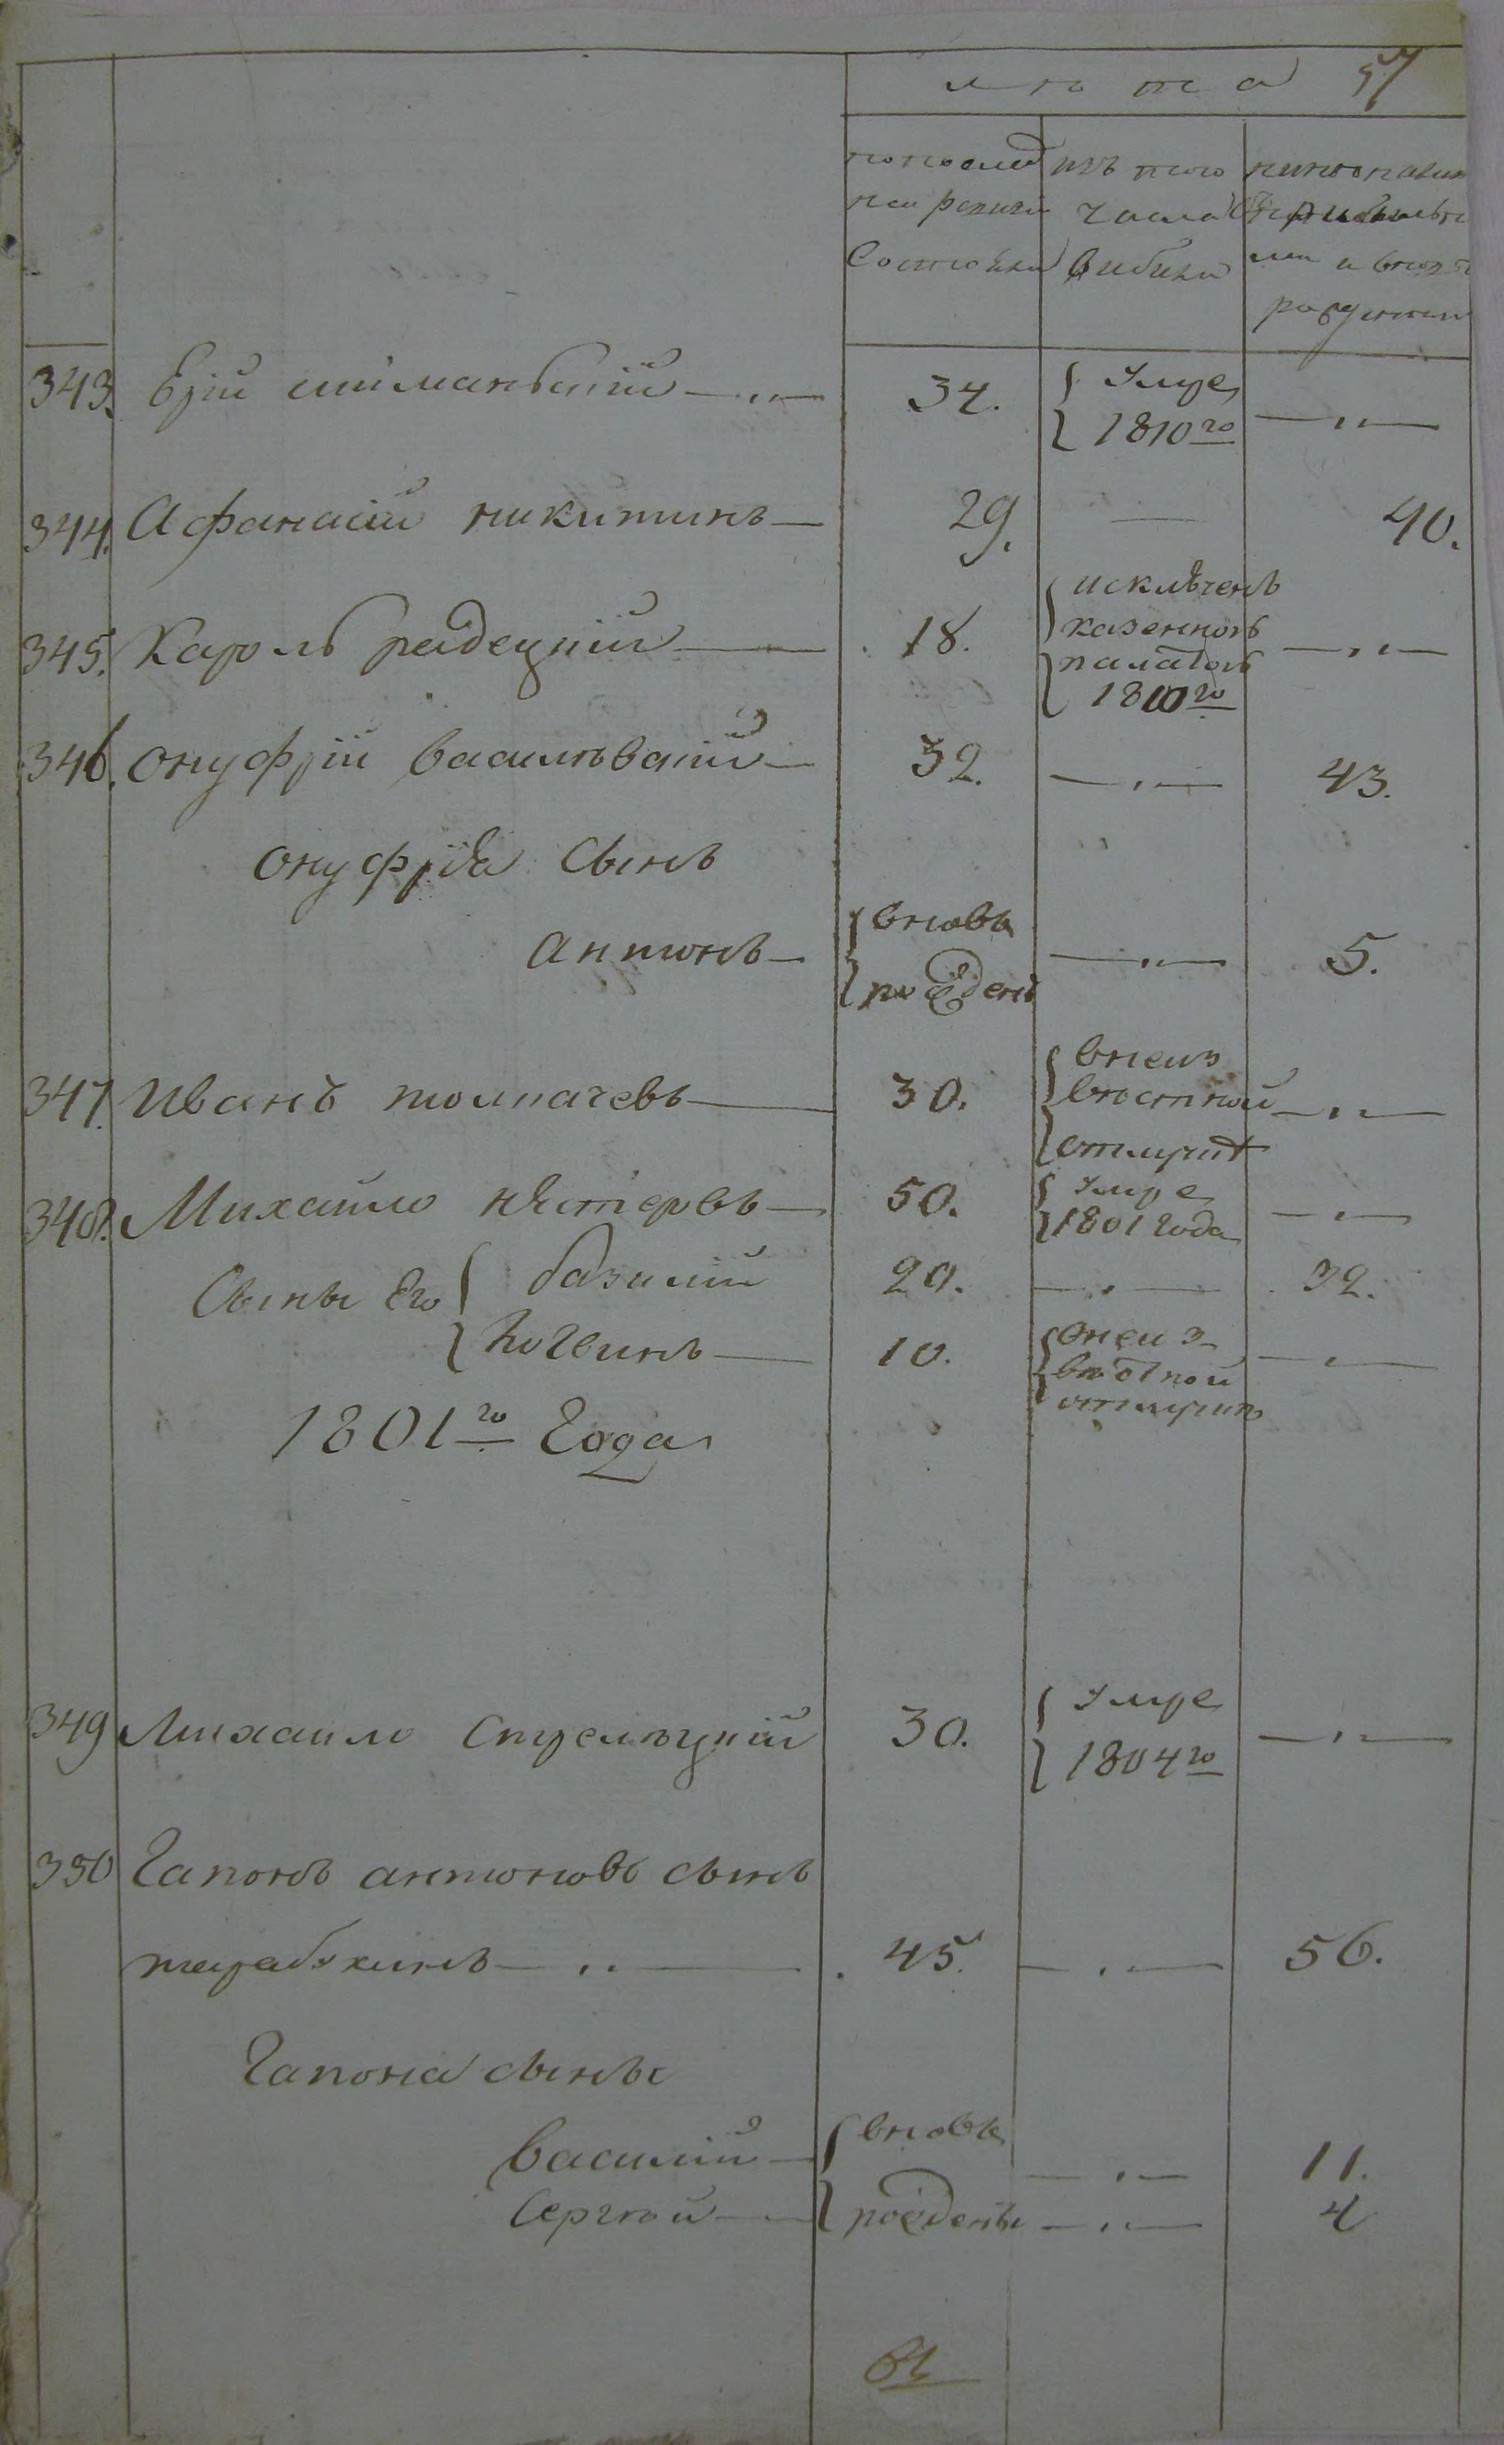 лѣта 57
попослед изъ того ныне налицо
ней ревизіи числа
Состояли выбыли и вновь
рожденныхъ
343. Ерій шиманскій 34. Умре
1810го
344. Афанасій никитинъ 29. 40.
345. Кароль радецкій 18. исключенъ
казенною
палатою
1810го
346. онуфрій василѣвскій 32. 43.
онуфрія Сынъ
антонъ вновь рожденъ 5.
347. Иванъ толпачевъ 30. внеиз
вѣстной
отлучкѣ
348. Михайло нестеровъ 50. Умре
1801 года
Сыны Его базилій 20. 32.
логвинъ 10. внеиз
вѣстной
отлучкѣ
1801го Года
349 Михайло Стрелѣцкій 30. Умре
1804го
350 Гапонъ антоновъ сынъ
45. 56.
Гапона сыны
василій вновь 11.
Сергѣй рождены 4